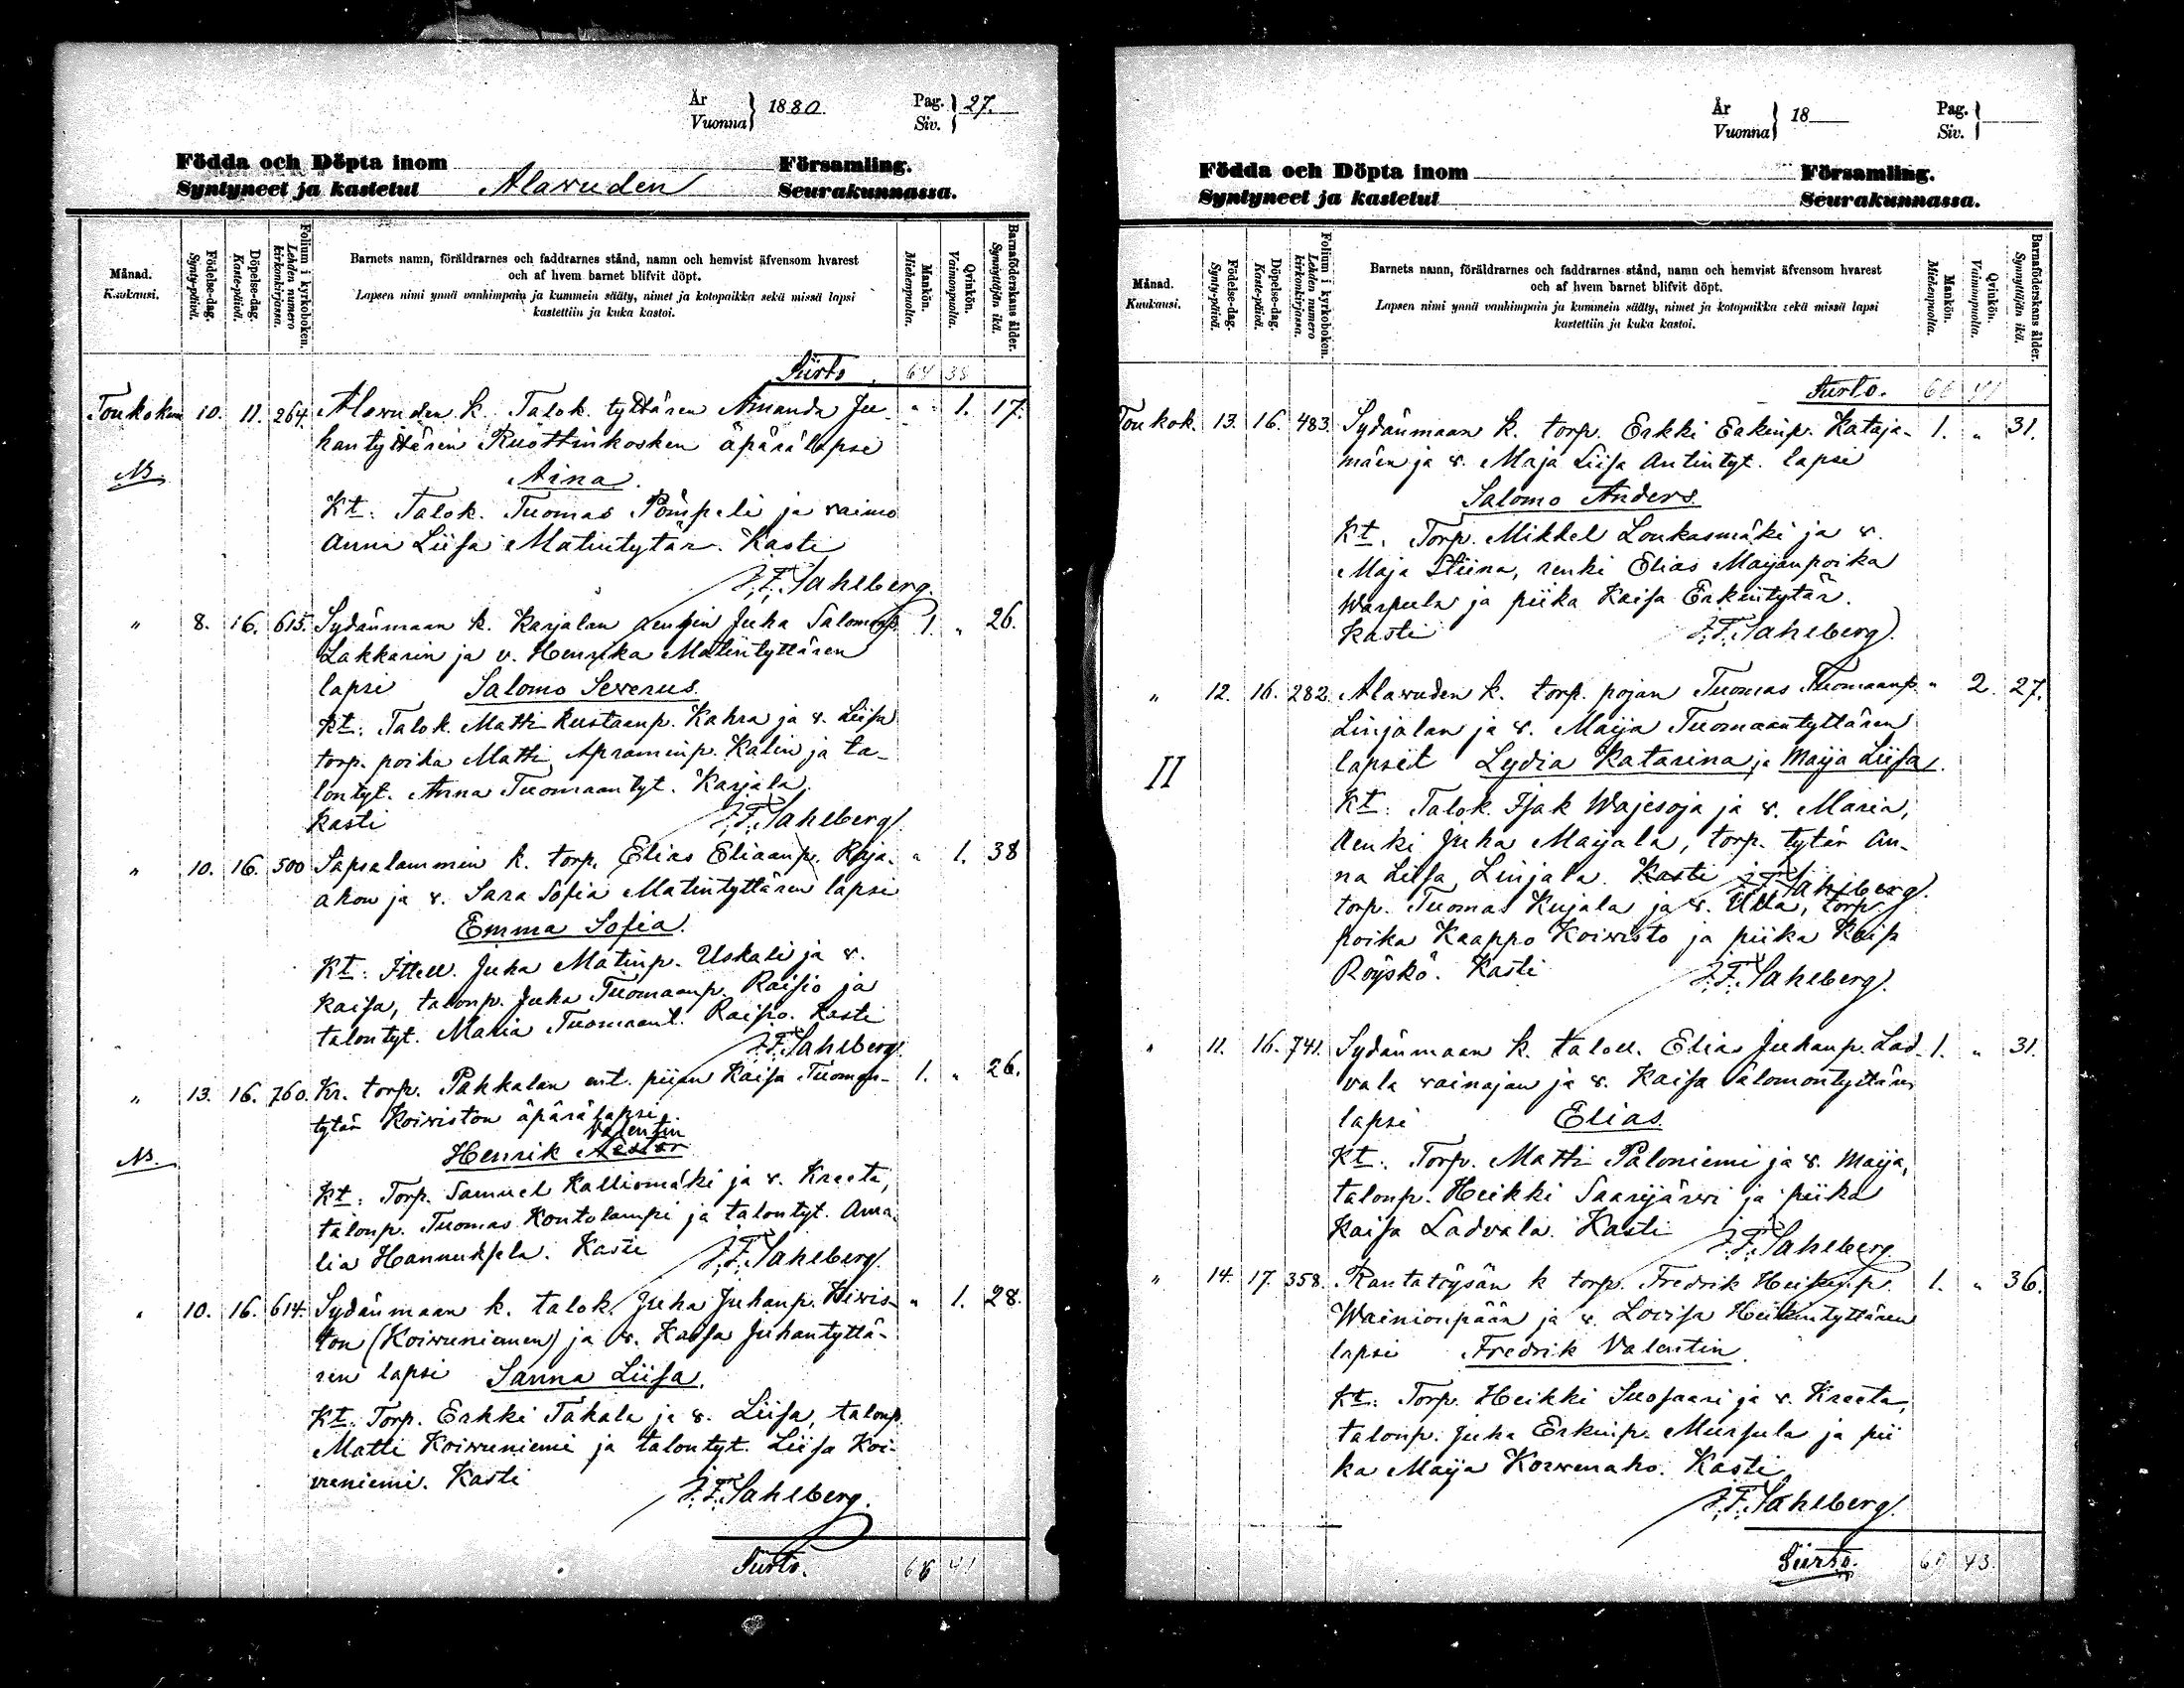 År
Vuonna
1880.
Pag.
Siv.
27.
Födda och Döpta inom
Församling.
Syntyneet ja kastetut
Alavuden
Seurakunnassa.
Månad.
Kuukausi.
Födelse-dag.
Synty-päivä.
Döpelse-dag.
Kaste-päivä.
Folium i kyrkoboken.
Lehden numero
kirkonkirjassa.
Barnets namn, föräldrarnes och faddrarnes stånd, namn och hemvist äfvensom hvarest
och af hvem barnet blifvit döpt.
Lapsen nimi ynnä vanhimpain ja kummein sääty, nimet ja kotopaikka sekä missä lapsi
kastettiin ja kuka kastoi.
Mankön.
Miehenpuolta.
Qvinkön.
Vaimonpuolta.
Barnaföderskans ålder.
Synnyttäjän ikä.
Siirto. 64 38
Toukokuu 10. 11. 264. Alavuden k. Talok. tyttären Amanda Ju- " 1. 17.
hantyttären Ruottinkosken äpärälapsi
NB. Aina.
Kt: Talok. Tuomas Pömpeli ja vaimo
Anna Liisa Matintytär. Kasti
J.F. Sahlberg.
" 8. 16. 615. Sydänmaan k. Karjalan rengin Juha Salomonp. 1. " 26.
Lakkarin ja v. Henrika Matintyttären
lapsi Salomo Severus.
Kt: Talok. Matti Kustaanp. Kahra ja v. Liisa
torp. poika Matti Apraminp. Kalin ja ta-
lontyt. Anna Tuomaantyt. Karjala.
Kasti J.F. Sahlberg.
" 10. 16. 500 Sapsalammin k. torp. Elias Eliaanp. Raja- " 1. 38
ahon ja v. Sara Sofia Matintyttären lapsi
Emma Sofia.
Kt: Ittell. Juha Matinp. Uskali ja v.
Kaisa, talonp. Juha Tuomaanp. Raisio ja
talontyt. Maria Tuomaant. Raisio. Kasti
J.F. Sahlberg.
" 13. 16. 760. Kr. torp. Pakkalan ent. piian Kaisa Tuoman- 1. " 26.
tytär Koiviston äpärälapsi
Valentin
NB. Henrik Nestor
Kt: Torp. Samuel Kalliomäki ja v. Kreeta,
talonp. Tuomas Kontolampi ja talontyt. Ama-
lia Hannuksela. Kasti J.F. Sahlberg.
" 10. 16. 614. Sydänmaan k. talok. Juha Juhanp. Hirvis- " 1. 28.
ton (Koivuniemen) ja v. Kaisa Juhantyttä-
ren lapsi Sanna Liisa.
Kt: Torp. Erkki Takala ja v. Liisa, talonp.
Matti Koivuniemi ja talontyt. Liisa Koi-
vuniemi. Kasti J.F. Sahlberg.
Siirto. 66 41
År
Vuonna
18
Pag.
Siv.
Födda och Döpta inom
Församling.
Syntyneet ja kastetut
Seurakunnassa.
Månad.
Kuukausi.
Födelse-dag.
Synty-päivä.
Döpelse-dag.
Kaste-päivä.
Folium i kyrkoboken.
Lehden numero
kirkonkirjassa.
Barnets namn, föräldrarnes och faddrarnes stånd, namn och hemvist äfvensom hvarest
och af hvem barnet blifvit döpt.
Lapsen nimi ynnä vanhimpain ja kummein sääty, nimet ja kotopaikka sekä missä lapsi
kastettiin ja kuka kastoi.
Mankön.
Miehenpuolta.
Qvinkön.
Vaimonpuolta.
Barnaföderskans ålder.
Synnyttäjän ikä.
Siirto. 66 41
Toukok. 13. 16. 483. Sydänmaan k. torp. Erkki Erkinp. Kataja- 1. " 31.
mäen ja v. Maja Liisa Antintyt. lapsi
Salomo Anders.
Kt: Torp. Mikkel Loukasmäki ja v.
Maja Stiina, renki Elias Maijanpoika
Warpula ja piika Kaisa Erkintytär.
Kasti J.F. Sahlberg.
" 12. 16. 282. Alavuden k. torp. pojan Tuomas Tuomaanp. " 2. 27.
Linjalan ja v. Maija Tuomaantyttären
II lapset Lydia Katarina ja Maija Liisa.
Kt: Talok. Isak Wajesoja ja v. Maria,
renki Juha Maijala, torp. tytär An-
na Liisa Linjala. Kasti J.F. Sahlberg.
torp. Tuomas Kujala ja v. Ulla, torp.
poika Kaappo Koivisto ja piika Kaisa
Röyskö. Kasti J.F. Sahlberg.
" 11. 16. 741. Sydänmaan k. talou. Elias Juhanp. Lad- 1. " 31.
vala vainajan ja v. Kaisa Salomontyttären
lapsi Elias.
Kt: Torp. Matti Paloniemi ja v. Maija,
talonp. Heikki Saarijärvi ja piika
Kaisa Ladvala. Kasti J.F. Sahlberg.
" 14. 17. 358. Rantatöysän k torp. Fredrik Heikinp. 1. " 36.
Wainionpään ja v. Lovisa Heikintyttären
lapsi Fredrik Valentin.
Kt: Torp. Heikki Suosaari ja v. Kreeta,
talonp. Juha Erkinp. Mursula ja pii
ka Maija Korvenaho. Kasti
J.F. Sahlberg.
Siirto. 43.